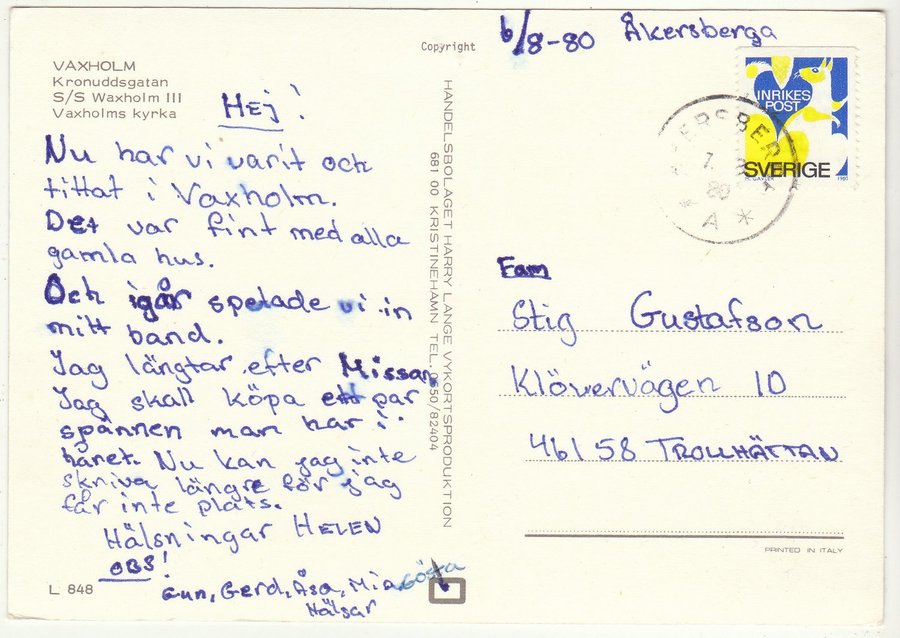 VAXHOLM
Kronuddsgatan
S/S Waxholm III
Vaxholms kyrka
Hej!
Nu har vi varit och
tittat i Vaxholm.
Det var fint med alla
gamla hus.
Och igår spelade vi in
mitt band.
Jag längtar efter Missan
Jag skall köpa ett par
spännen man har i
håret. Nu kan jag inte
skriva längre för jag
får inte plats.
Hälsningar HELEN
OBS!
Gun, Gerd, Åsa, Mia Gösta
Hälsar
L 848
Copyright
HANDELSBOLAGET HARRY LANGE VYKORTSPRODUKTION
681 00 KRISTINEHAMN TEL. 0550/82404
6/8-80 Åkersberga
INRIKES
POST
SVERIGE
1980
KERSBER
7.
80
A *
Fam
Stig Gustafson
Klövervägen 10
461 58 TROLLHÄTTAN
PRINTED IN ITALY